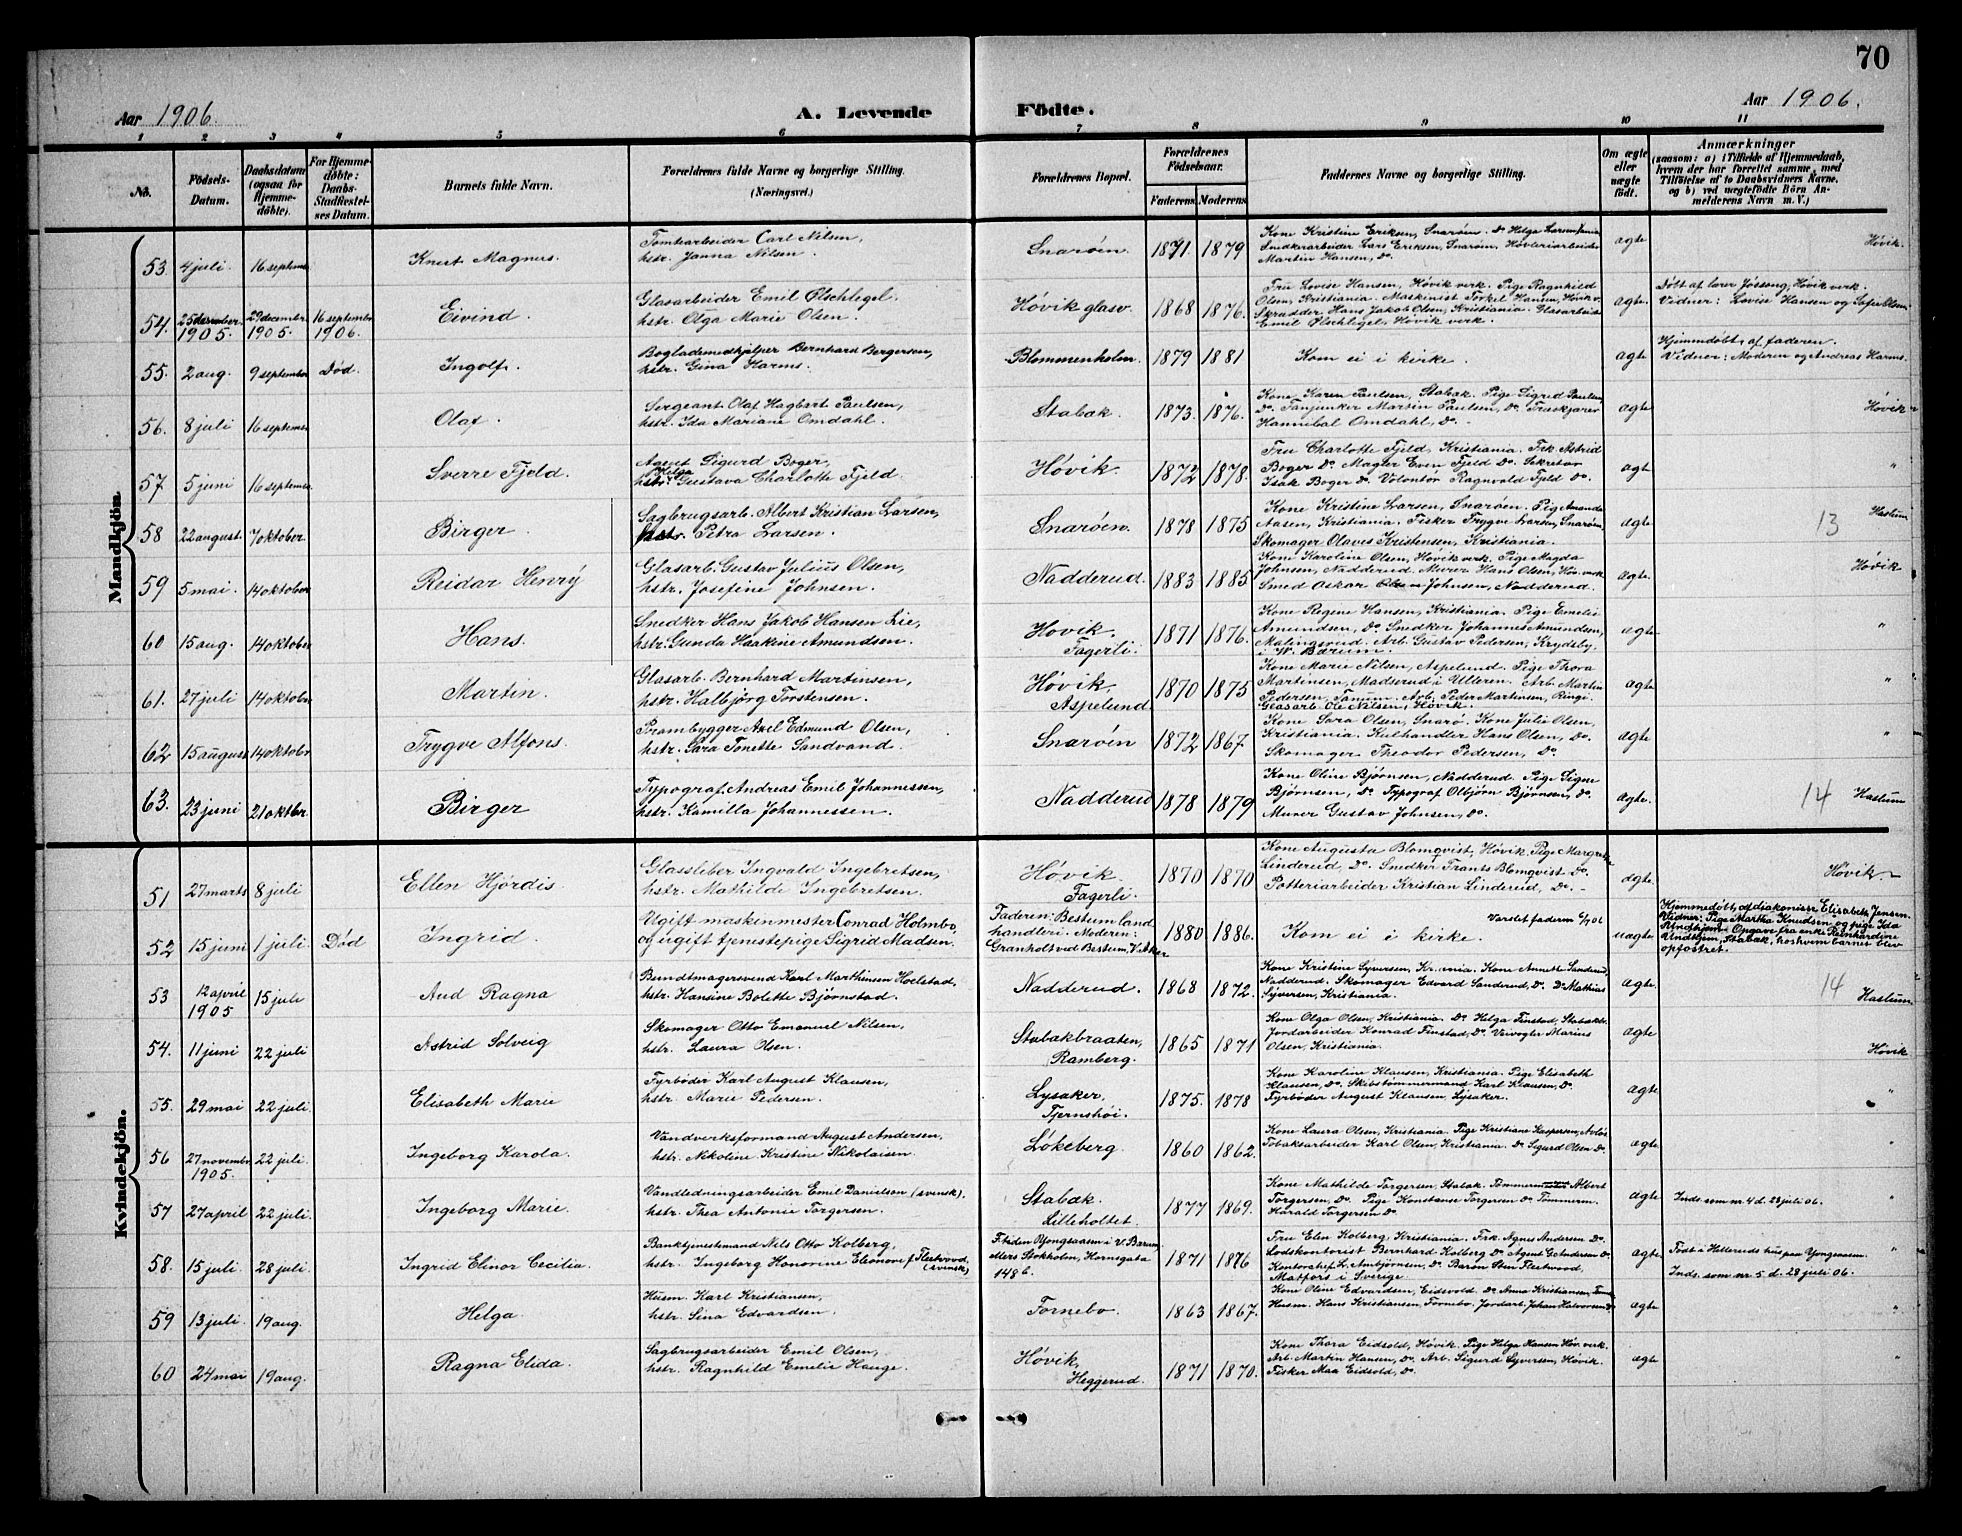 70
Aar 1906.
A. Levende
Födte.
Aar 1906.
1 2 3 4 5 6 7 8 9 10 11
No.
Födsels-Datum.
Daabsdatum (ogsaa for Hjemme-döbte).
For Hjemme-döbte: Daabs-Stadfæstel-ses Datum.
Barnets fulde Navn.
Forældrenes fulde Navne og borgerlige Stilling.
(Næringsvei.)
Forældrenes Bopæl.
Forældrenes Födselsaar.
Faderens. Moderens.
Faddernes Navne og borgerlige Stilling.
Om ægte eller uægte födt.
Anmærkninger
(saasom: a) i Tilfælde af Hjemmedaab,
hvem der har forrettet samme, med
Tilföielse af to Daabsvidners Navne,
og b) ved uægtefödte Börn An-
melderens Navn m. V.)
Mandkjön
53. 4 juli. 16 septemb. Knut Magnus. Tomtearbeider Carl Nilsen, hstr. Janna Nilsen. Snarøen. 1871 1879 Kone Kristine Eriksen, Snarøen. Do Helga Larsen, Snedkerarbeider Lars Eriksen, Snarøen, Høvleriarbeider Martin Hansen, do. ægte Høvik.
54. 25 desember 1905. 29 december 1905. 16 septembr 1906. Eivind. Glasarbeider Emil Ølschlegel. hstr. Olga Marie Olsen. Høvik glasv. 1868 1876. Fru Lovise Hansen, Høvik verk. Pige Ragnhild Olsen, Kristiania. Maskinist Torkel Hansen, Høvik v. Skrædder Hans Jakob Olsen, Kristiania. Glasarbeid. Emil Ølschlegel, Høvik verk. ægte. Døbt af lærer Jossong, Høvik verk. Vidner: Lovise Hansen og Sofie Olsen.
55. 2 aug. 9 september Død. Ingolf. Boglademedhjelper Bernhard Bergersen, hstr. Gina Harms. Blommenholm. 1879 1881 Kom ei i kirke. ægte Hjemmedøbt af faderen. Vidner: Moderen og Andreas Harms.
56. 8 juli 16 septemb. Olaf. Sergeant Olaf Hagbart Paulsen, hstr. Ida Mariane Omdahl. Stabæk. 1873. 1876. Kone Karen Paulsen, Stabæk. Pige Sigrid Paulsen, Do. Fanjunker Martin Paulsen, Do. Hannibal Omdahl, do. ægte Høvik
57. 5 juni 16 septemb. Sverre Fjeld. Agent Sigurd Boger, hstr. Helga Gustava Charlotte Fjeld. Høvik. 1872 1878. Fru Charlotte Fjeld, Kristiania. Frk. Astrid Boger Do. Magler Even Fjeld Do. Sekretær Isak Boger Do. Volontør Ragnvald Fjeld Do. ægte "
58 22 august. 7 oktober. Birger. Sagbrugsarb. Albert Kristian Larsen, hstr. Petra Larsen. Snarøen. 1878 1875 Kone Kristine Larsen, Snarøen. Pige Amanda Aasen, Kristiania. Fisker Trygve Larsen, Snarøen, Skomager Olaves Kristensen, Kristiania. ægte 13 Haslum
59 5 mai. 14 oktober Reidar Henry Glasarb. Gustav Julius Olsen, hstr. Josefine Johnsen. Nadderud. 1883 1885 Kone Karoline Olsen, Høvik verk. Pige Magda Johnsen, Nadderud. Murer Hans Olsen, Høv. verk Smed Oskar Johnsen, Nadderud. ægte. Høvik
60 15 aug. 14 oktober Hans. Snedker Hans Jakob Hansen Lie, hstr. Gunda Haakine Amundsen. Høvik. Fagerli. 1871 1876. Kone Regene Hansen, Kristiania. Pige Emelie Amundsen, Do. Snedker Johannes Amundsen, Malingsrud. Arb. Gustav Pedersen, Krydsby, i W. Bærum. ægte "
61. 27 juli 14 oktobr Martin. Glasarb. Bernhard Martinsen, hstr. Halbjørg Torstensen. Høvik, Aspelund 1870 1875 Kone Marie Nilsen, Aspelund. Pige Thora Martinsen, Madserud i Ulleren. Arb. Martin Pedersen, Tanum. Arb. Peder Martinsen, Ringi. Glasarb. Ole Nilsen, Høvik. ægte "
62 15 august 14 oktobr Trygve Alfons. Prambygger Axel Edmund Olsen, hstr. Sara Tonette Sandvand. Snarøen 1872 1867. Kone Sara Olsen, Snarø. Kone Julie Olsen, Kristiania. Kulhandler Hans Olsen, Do. Skomager Theodor Pedersen, Do. ægte "
63. 23 juni 21 oktber. Birger Typograf Andreas Emil Johannessen, hstr. Kamilla Johannessen. Nadderud 1878 1879 Kone Oline Bjørnsen, Nadderud. Pige Signe Bjørnsen, Do Typograf Olbjørn Bjørnsen, do. Murer Gustav Johnsen, do. ægte. 14 Haslum
Kvindekjön.
51 27 marts 8 juli Ellen Hjørdis Glassliber Ingvald Ingebretsen, hstr. Mathilde Ingebretsen. Høvik. Fagerli. 1870 1870 Kone Augusta Blomqvist, Høvik. Pige Margrethe Linderud, Do. Snedker Frants Blomqvist Do. Potteriarbeider Kristian Linderud, Do. ægte. Høvik.
52 15 juni 1 juli. Død Ingrid. Ugift maskinmester Conrad Holmbo, og ugift tjenestepige Sigrid Madsen. Faderen: Bestum land handleri. Moderen: Granholt ved Bestum, V. Aker 1880 1886. Kom ei i kirke. Varslet faderen 6/7 06 uægte Hjemmedøbt af diakonisse Elisabeth Jensen. Vidner: Pige Martha Knudsen og pige Ida Lindhjem. Opgave fra enke Reinhardine Lindhjem, Stabæk, hos hvem barnet blev opfostret.
53 12 april 1905 15 juli Aud Ragna Bundtmagersvend Karl Marthinsen Hoelstad, hstr. Hansine Bolette Bjørnstad. Nadderud. 1868 1872. Kone Kristine Syversen, Kr.ania. Kone Annette Sanderud, Nadderud. Skomager Edvard Sanderud, Do. Do Mathias Syversen, Kristiania. ægte. 14 Haslum
54. 11 juni 22 juli Astrid Solveig Skomager Otto Emanuel Nilsen, hstr. Laura Olsen. Stabækbraaten, Ramberg. 1865 1871 Kone Olga Olsen, Kristiania. Do Helga Finstad, Stabækbr. Jordarbeider Konrad Finstad, Do. Marius Olsen, Kristiania. ægte Høvik
55. 29 mai 22 juli. Elisabeth Marie Fyrbøder Karl August Klausen, hstr. Marie Pedersen. Lysaker, Tjernshøi. 1875. 1878 Kone Karoline Klausen, Kristiania. Pige Elisabeth Klausen, Do. Skibstømmermand Karl Klausen, Do. Fyrbøder August Klausen Lysaker. ægte "
56 27 novembr 1905. 22 juli. Ingeborg Karola. Vandverksformand August Andersen, hstr. Nikoline Kristine Nikolaisen. Løkeberg. 1860 1862. Kone Laura Olsen, Kristiania. Pige Kristiane Kaspersen, Avløs Tobaksarbeider Karl Olsen, Kristiania. Do Sigurd Olsen Do. ægte "
57 27 april 22 juli. Ingeborg Marie. Vandledningsarbeider Emil Danielson (svensk). hstr. Thea Antonie Torgersen. Stabæk. Lilleholtet. 1877 1869. Kone Mathilde Torgersen, Stabæk. Albert Torgersen, Do. Pige Konstanse Torgersen Do. Tømmerm. Harald Torgersen Do. ægte Inds. som nr. 4 d. 28 juli 06. "
58. 15 juli. 28 juli. Ingrid Elinor Cecilia. Banktjenestemand Nils Otto Kolberg, hstr. Ingeborg Honorine Eleonore f. Fleetwood (svensk) F. tiden Yongsaasen i V. Bærum, ellers Stokholm, Hornsgata 148 b. 1871 1876 Fru Elen Kolberg, Kristiania. Frk. Agnes Andersen Do. Lodskontorist Bernhard Kolberg Do Agent G. Andersen Do. Kontorchef L. Arnbjørnsen, Do. Baron Sten Fleetwood, Matfors i Sverige. ægte Født i Hilleruds hus paa Yongsaasen. Inds. som nr 5 d. 28 juli 06. "
59 13 juli. 19 aug. Helga. Husm. Karl Kristiansen, hstr. Lina Edvardsen. Fornebo. 1863 1867. Kone Oline Edvardsen, Eidsvold. Do Anna Kristiansen, Husm. Hans Kristiansen, Fornebo. Jordarb. Johan Halvorsen Do ægte "
60 24 mai 19 aug. Ragna Elida. Sagbrugsarbeider Emil Olsen, hstr. Ragnhild Emelie Hauge. Høvik, Heggerud. 1871 1870. Kone Thora Eidsold, Høvik. Pige Helga Hansen Høv. verk. Arb. Martin Hansen, Do. Arb. Sigurd Syversen, Høvik. Fisker Eidsold, Do. ægte "